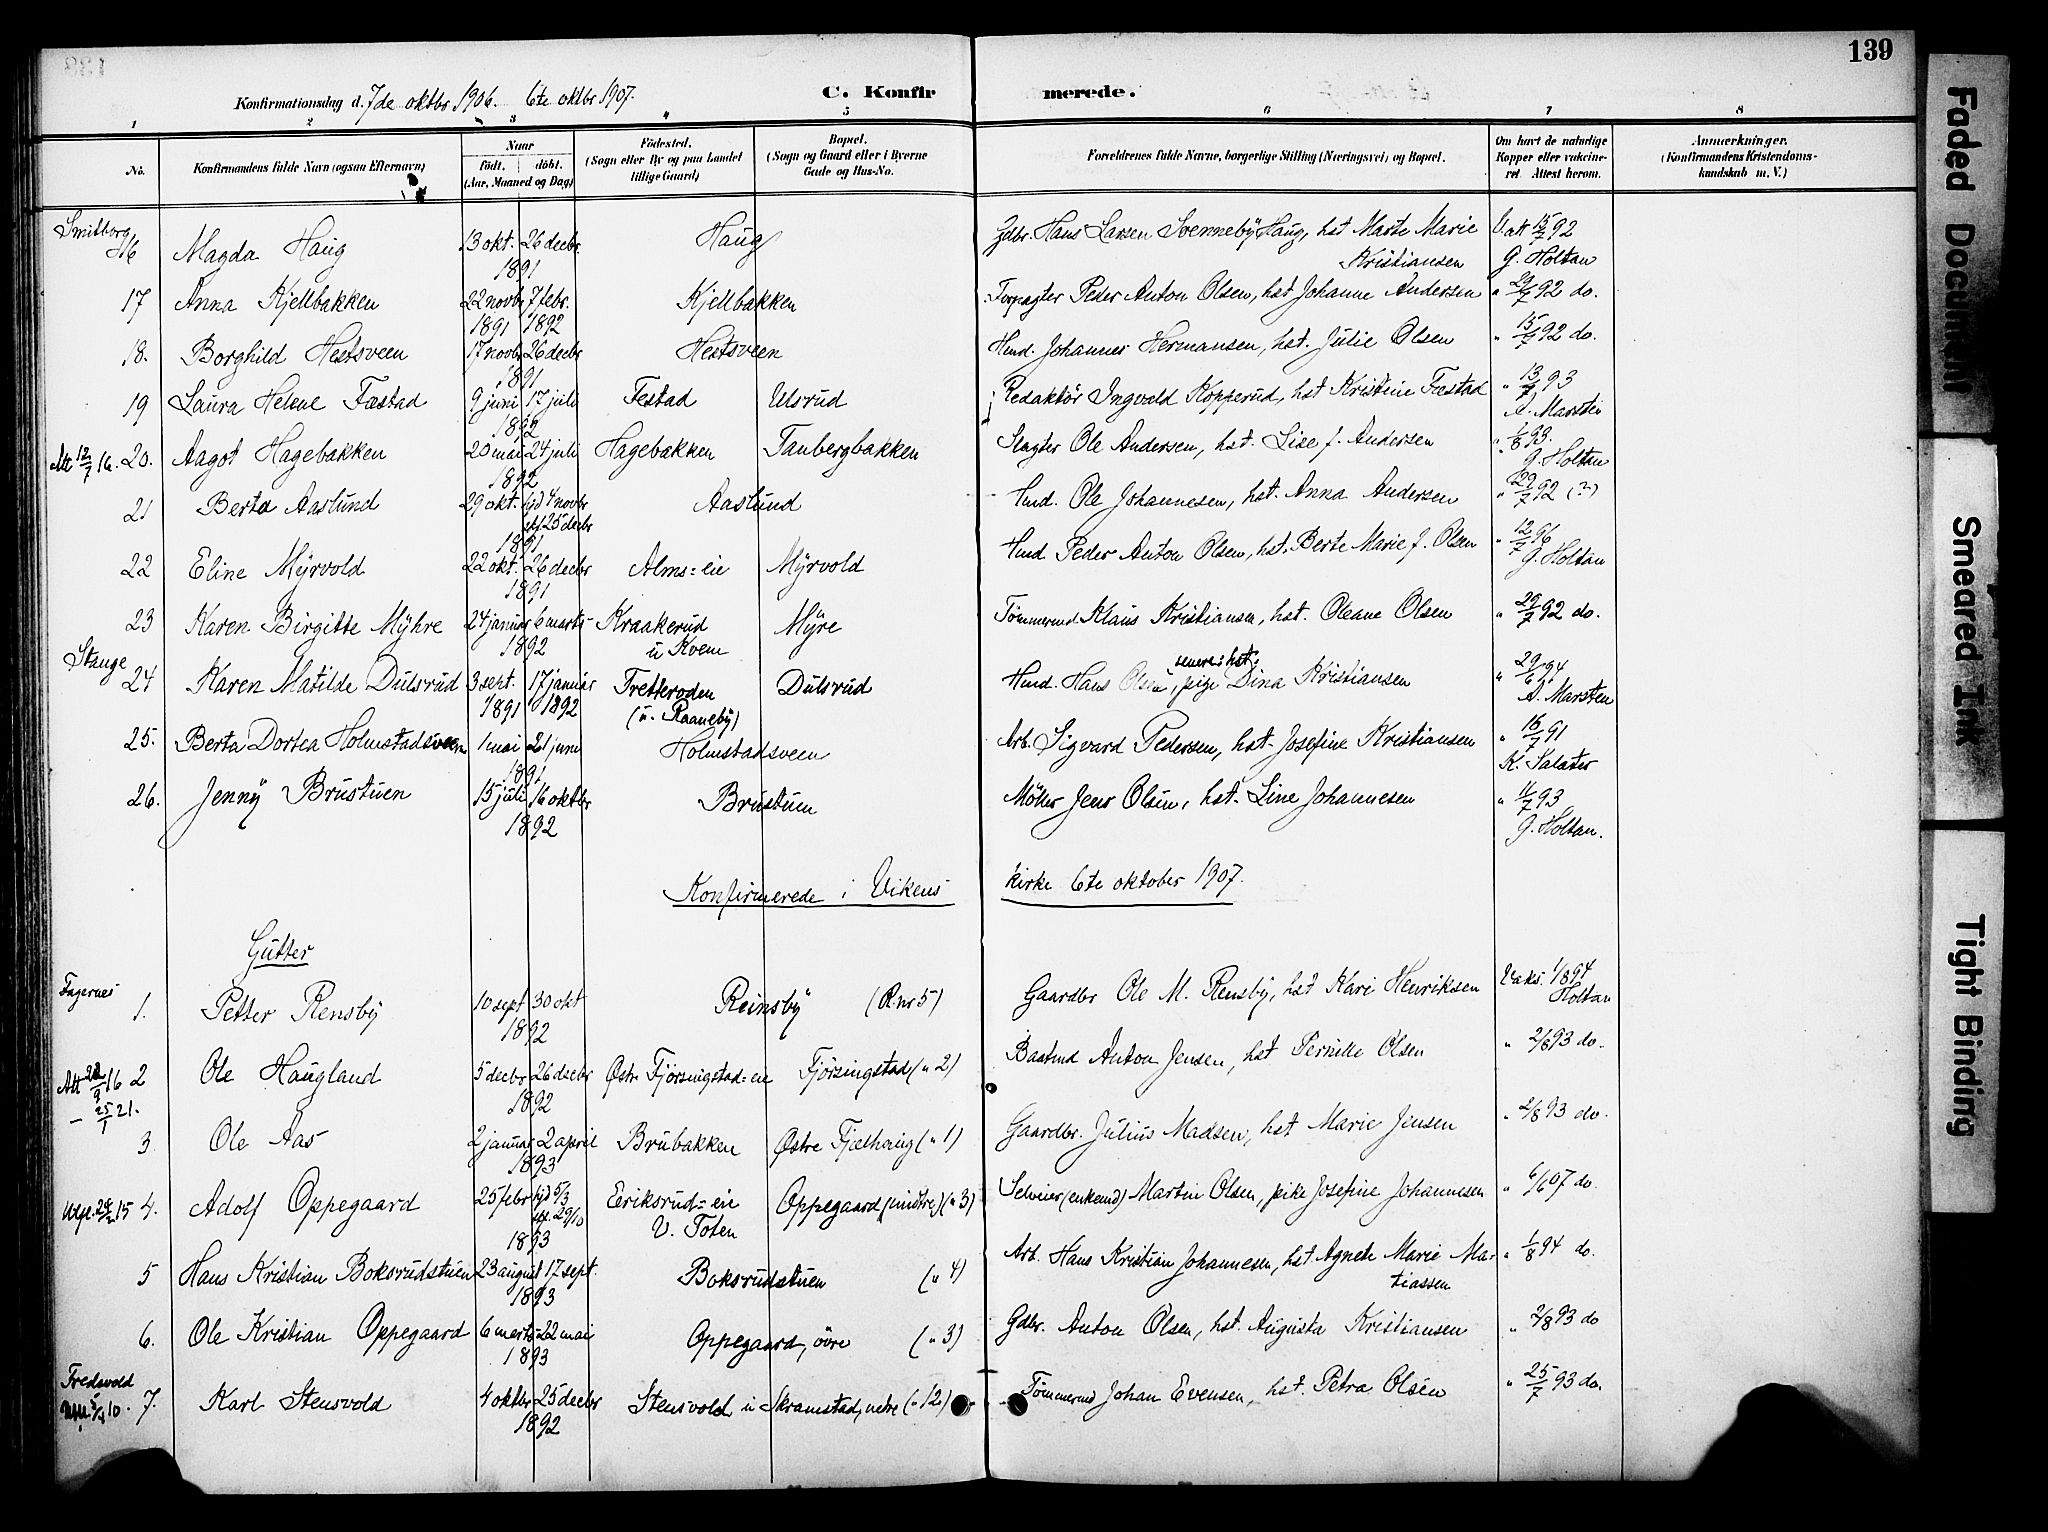 139
Konfirmationsdag d. 7de oktbr 1906. 6te oktbr 1907.
C. Konfirmerede.
1 2 3 4 5 6 7 8
No.
Konfirmandens fulde Navn (ogsaa Efternavn)
Naar
födt. döbt.
(Aar, Maaned og Dag)
Födested.
(Sogn eller By og paa Landet
tillige Gaard)
Bopæl.
(Sogn og Gaard eller i Byerne
Gade og Hus-No.
Forældrenes fulde Navne, borgerlige Stilling (Næringsvei) og Bopæl.
Om havt de naturlige
Kopper eller vakcine-
ret. Attest herom.
Anmærkninger.
(Konfirmandens Kristendoms-
kundskab m. V.)
Smitborg
16 Magda Haug 13 okt. 26 decbr. Haug Gdbr. Hans Larsen Svenneby Haug, hst Marte Marie Vatt 15/7 92
1891 Kristiansen G. Holtan
17 Anna Kjellbakken 22 novbr 7 febr. Kjellbakken Forpagter Peder Anton Olsen, hst Johanne Andersen " 29/7 92 do.
1891 1892
18. Borghild Hestsveen 17 novbr 26 decbr Hestsveen Hmd. Johannes Hermansen, hst. Julie Olsen " 15/7 92 do.
1891
19 Laura Helene Fæstad 9 juni 17 juli Festad Ulsrud Redaktör Ingvald Kopperud, hst Kristine Fæstad " 13/7 93
1892 A. Marsten
Att 12/7 16. 20. Aagot Hagebakken 20 mai 24 juli Hagebakken Taubergbakken Slagter Ole Andersen, hst. Lise f. Andersen " 1/8 93.
1892 G. Holtan
21 Berta Aaslund 29 okt. hjd 4 novbr Aaslund Hmd. Ole Johannesen, hst. Anna Andersen " 29/7 92 (?)
25 decbr
1891
22 Eline Myrvold 22 okt. 26 decbr Alms=eie Myrvold Hmd Peder Anton Olsen, hst. Berte Marie f. Olsen " 12/7 96
1891 G. Holtan
23 Karen Birgitte Myhre 24 januar 6 marts Kraakerud Myre Tömmermd. Klaus Kristiansen, hst. Oleane Olsen " 29/7 92 do.
1892 u Kvem
Stange
senere: hst:
24 Karen Matilde Dulsrud 3 sept. 17 januar Tretteroden Dulsrud Hmd. Hans Olsen, pige Dina Kristiansen " 29/6 94
1891 1892 (u. Raaneby) A. Marsten
25. Berta Dortea Holmstadsveen 1 mai 21 juni Holmstadsveen Arb. Sigvard Pedersen, hst. Josefine Kristiansen " 16/7 91
1891 K. Salater
26. Jenny Brustuen 15 juli 16 oktbr Brustuen Möller Jens Olsen, hst. Line Johannesen " 11/7 93
1892 G. Holtan.
Konfirmerede i Vikens kirke 6te oktober 1907.
Gutter
Fagernes
1. Petter Rensby 10 sept 30 okt Reinsby (R.nr 5) Gaardbr Ole M. Rensby, hst Kari Henriksen Vaks. 1/8 94
1892 Holtan
Att 22/9 16 2 Ole Haugland 5 decbr 26 decbr Östr. Fjörsingstad=eie Fjörsingstad (" 2) Baatmd Anton Jensen, hst Pernille Olsen " 2/8 93 do.
– 25/1 21. 1892
3. Ole Aas 2 januar 2 april Brubakken Östre Fjælhaug (" 1) Gaardbr. Julius Madsen, hst Marie Jensen " 2/8 93 do.
1893
15 4. Adolf Oppegaard 25 febr hjd 5/3 Eeriksrud=eie Oppegaard (mindre) (" 3) Selveier (enkemd) Martin Olsen, pike Josefine Johannesen " 6/6 07 do.
29/10
1893 V. Toten
5 Hans Kristian Boksrudstuen 23 august 17 sept. Boksrudstuen (" 4) Arb. Hans Kristian Johannesen, hst. Agnete Marie Ma- " 1/8 94 do.
1893 tiassen
6. Ole Kristian Oppegaard 6 marts 22 mai Oppegaard, övre (" 3) Gdbr. Anton Olsen, hst. Augusta Kristiansen " 2/8 93 do
1893
Fredsvold
10. 7. Karl Stensvold 4 oktbr 25 decbr Stensvold u Skramstad, nedre (" 12) Tömmermd Johan Evensen, hst. Petra Olsen " 25/7 93 do.
1892
Faded Document
Smeared Ink
Tight Binding